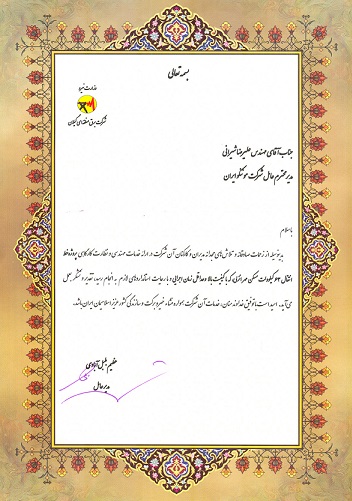 بسمه تعالی
وزارت نیرو
شرکت برق منطقه‌ای گیلان
جناب آقای مهندس علیرضا شیرانی
مدیر محترم عامل شرکت موننکو ایران
با سلام
بدینوسیله از زحمات صادقانه و تلاش‌های مجدانه مدیران و کارکنان آن شرکت در ارائه خدمات مهندسی و نظارت کارگاهی پروژه خط
انتقال کیلوولت که با کیفیت بالا و حداقل زمان اجرایی و با رعایت استانداردهای لازم به انجام رسید، تقدیر و تشکر بعمل
می‌آید. امید است با توفیق خداوند منان، خدمات آن شرکت همواره منشاء خیر و برکت و سازندگی کشور عزیز اسلامیمان ایران باشد.
مدیر عامل